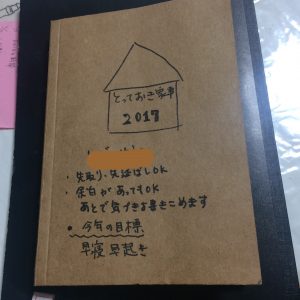 とっておき家事
2017
・先取り・先延ばしOK
・保留があってもOK
あとで気付きを書きこめます
● 今年の目標
早寝早起き